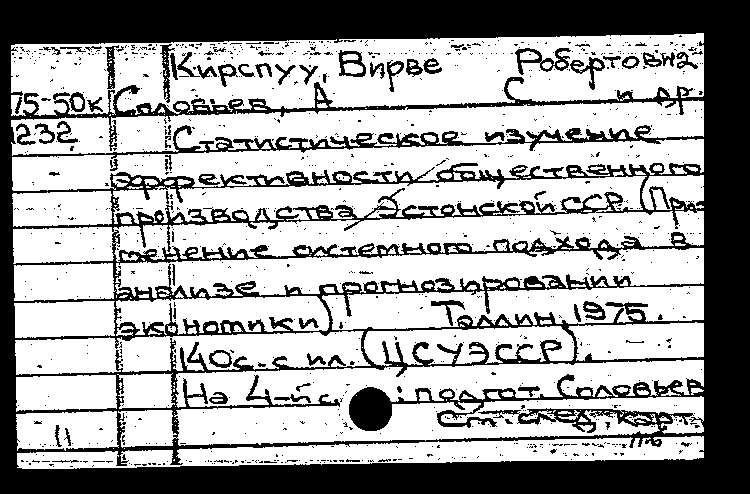 Кирспуу, Вирве Робертовна
75-50к Соловьев, А С и др.
1232 Статистическое изучение
эффективности общественного
производства Эстонской ССР. (При-
менение системного подхода в
анализе и прогнозировании
экономики). Таллин, 1975.
140 с. с ил. (ЦСУ ЭССР).
На 4-й с. : подгот. Соловьев
См. след. карт.
11